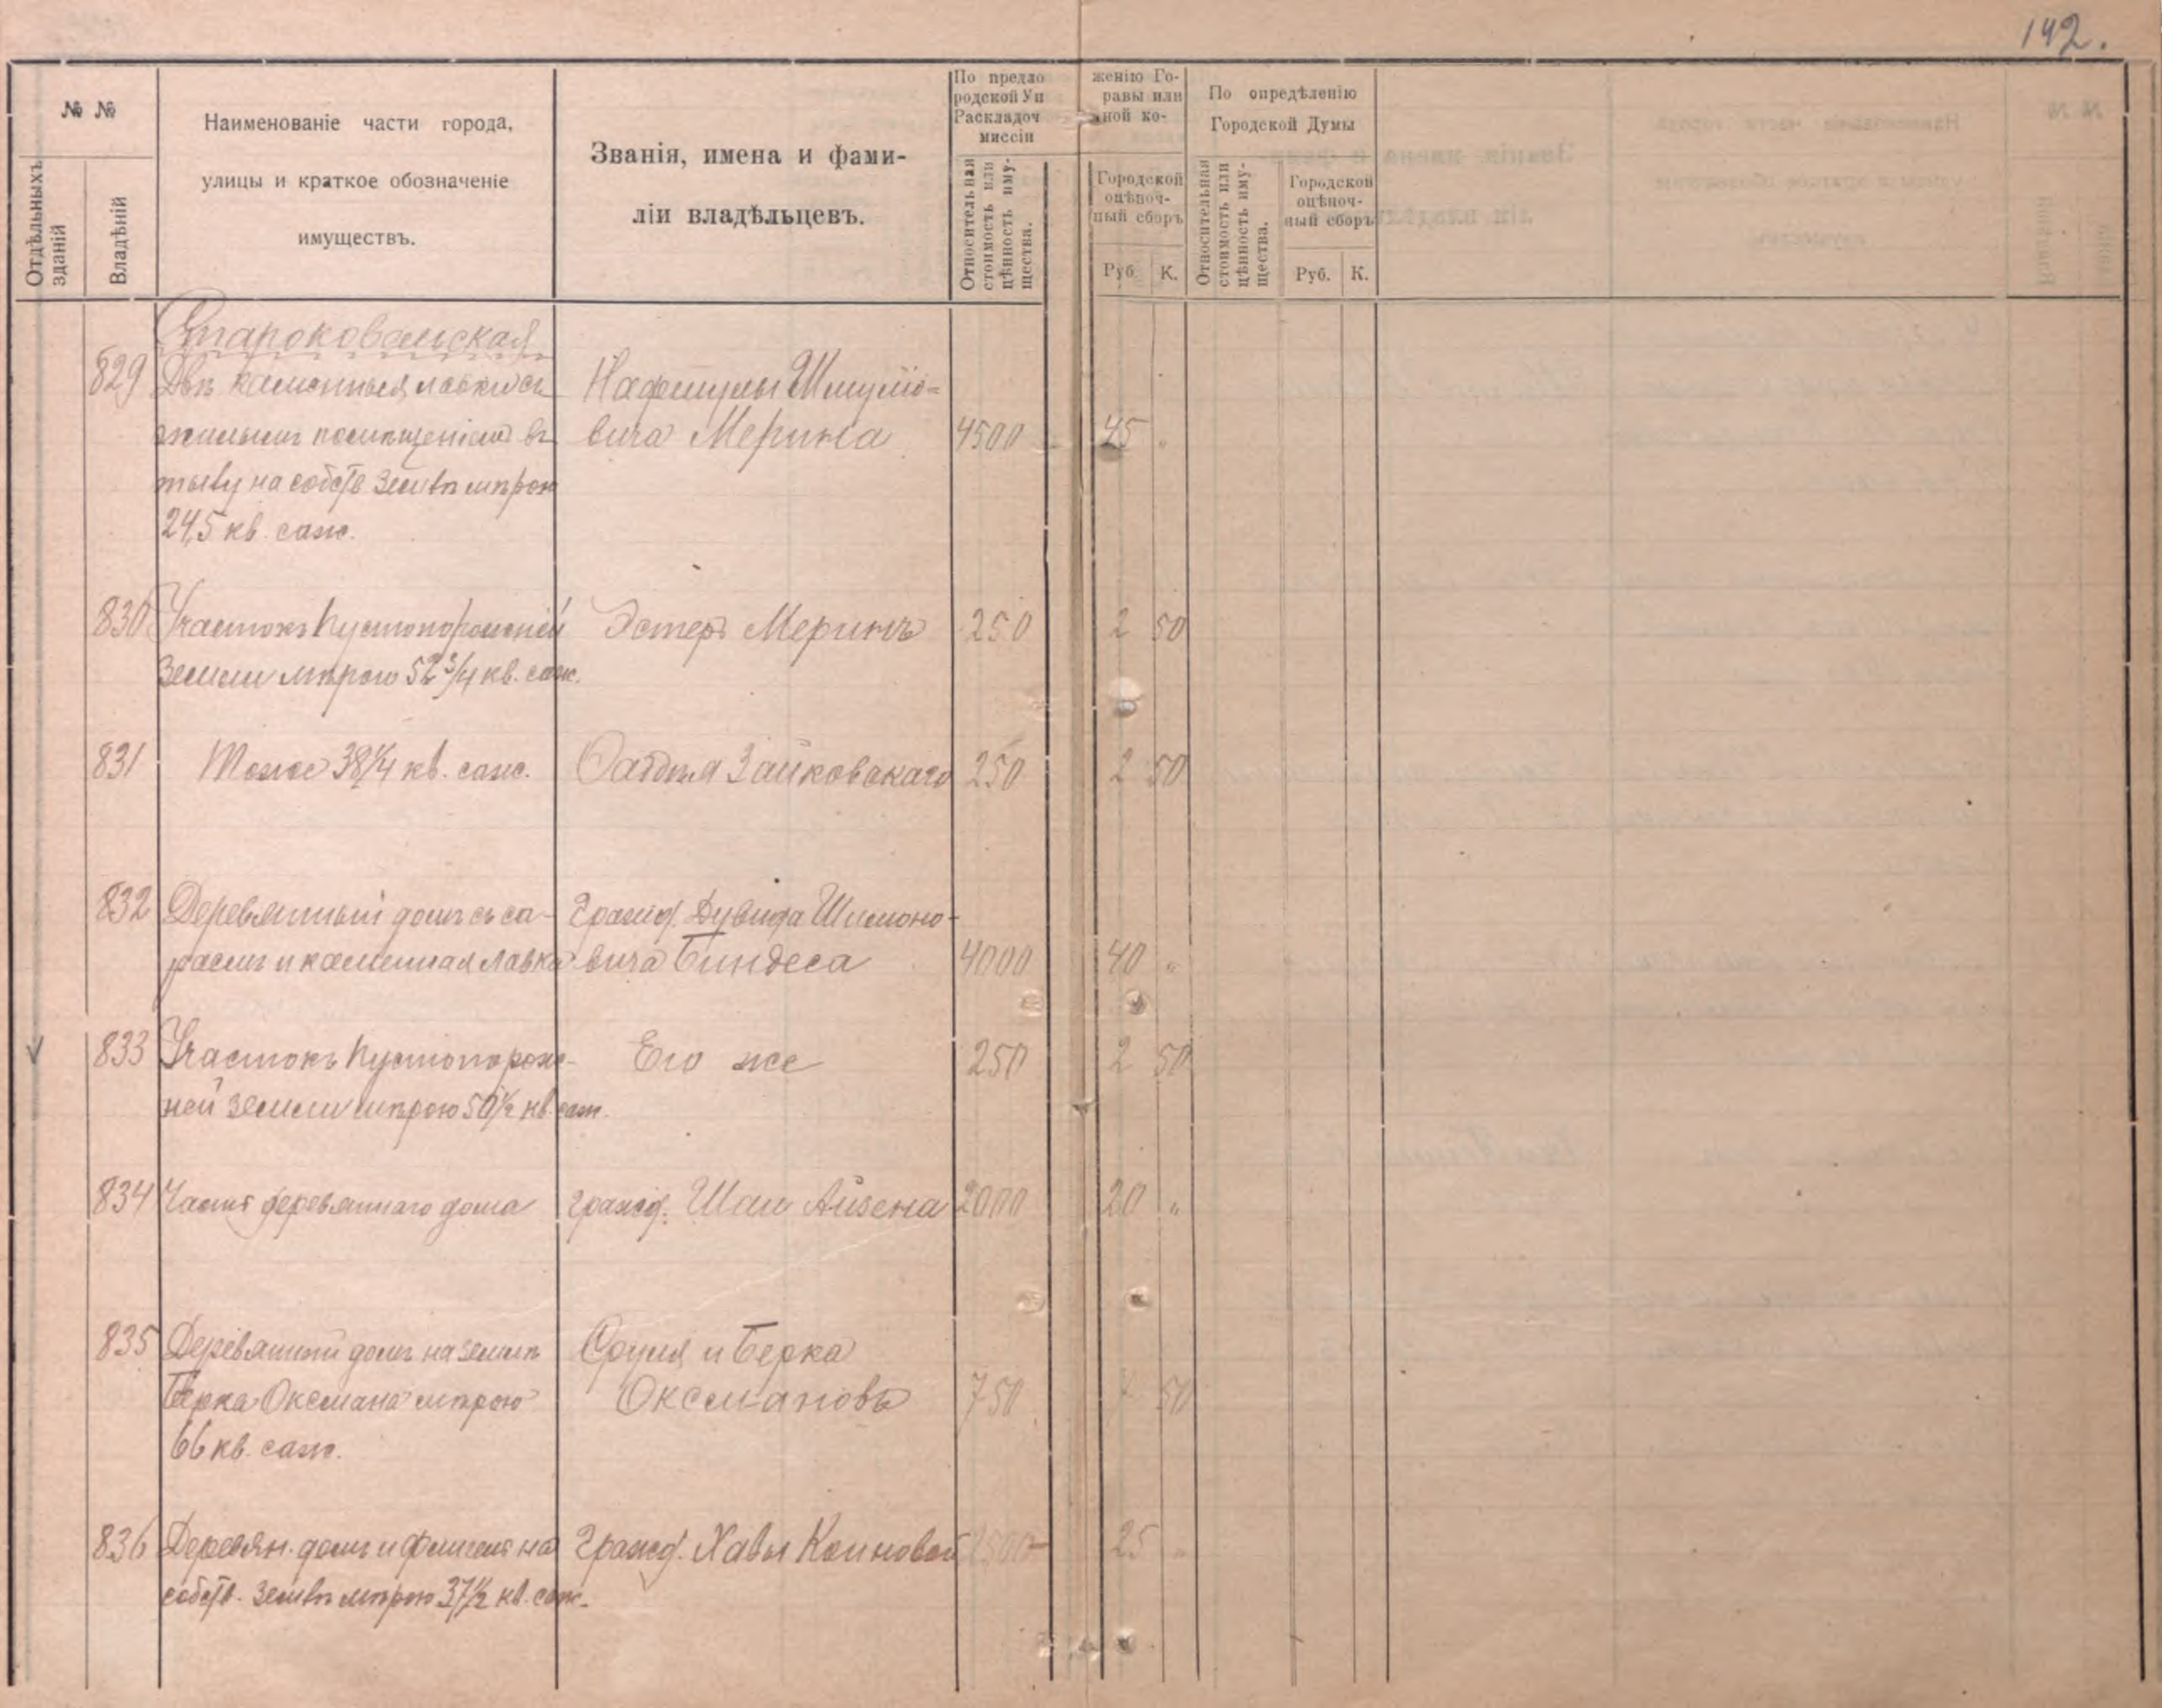 142.
№ №
Отдѣльныхъ зданій
Владѣній
Наименованіе части города,
улицы и краткое обозначеніе
имуществъ.
Званія, имена и фами-
ліи владѣльцевъ.
По предло женію Го-
родской Уп равы или
Раскладоч ной ко-
миссіи
Относительная
стоимость или
цѣнность иму-
щества.
Городской
оцѣноч-
ный сборъ
Руб. К.
По опредѣленію
Городской Думы
Относительная
стоимость или
цѣнность иму-
щества.
Городской
оцѣноч-
ный сборъ
Руб. К.
Староковельская
829 Двѣ каменныя лавки съ Нафтулы Шмуліо-
жилымъ помѣщеніемъ въ вича Мерина 4500 45 „
тылу на собств землѣ мѣрою
24,5 кв. саж.
830 Участокъ пустопорожней Эстеръ Меринъ 250 2 50
земли мѣрою 52 3/4 кв. саж.
831 Тоже 38 1/4 кв. саж. Зайковскаго 250 2 50
832 Деревянный домъ съ са- Гражд. Дувида Шимоно-
раемъ и каменная лавка вича Биндеса 4000 40 „
833 Участокъ пустопорож- Его же 250 2 50
ней земли мѣрою 50 1/2 кв. саж.
834 Часть деревяннаго дома гражд. Шаи Айзена 2000 20 „
835 Деревянный домъ на землѣ Сруля и Берка
Берка Оксмана мѣрою Оксмановъ 750 7 50
66 кв. саж.
836 Деревян. домъ и флигель на Гражд. Хавы 2500 25 „
собств. землѣ мѣрою 37 1/2 кв. саж.